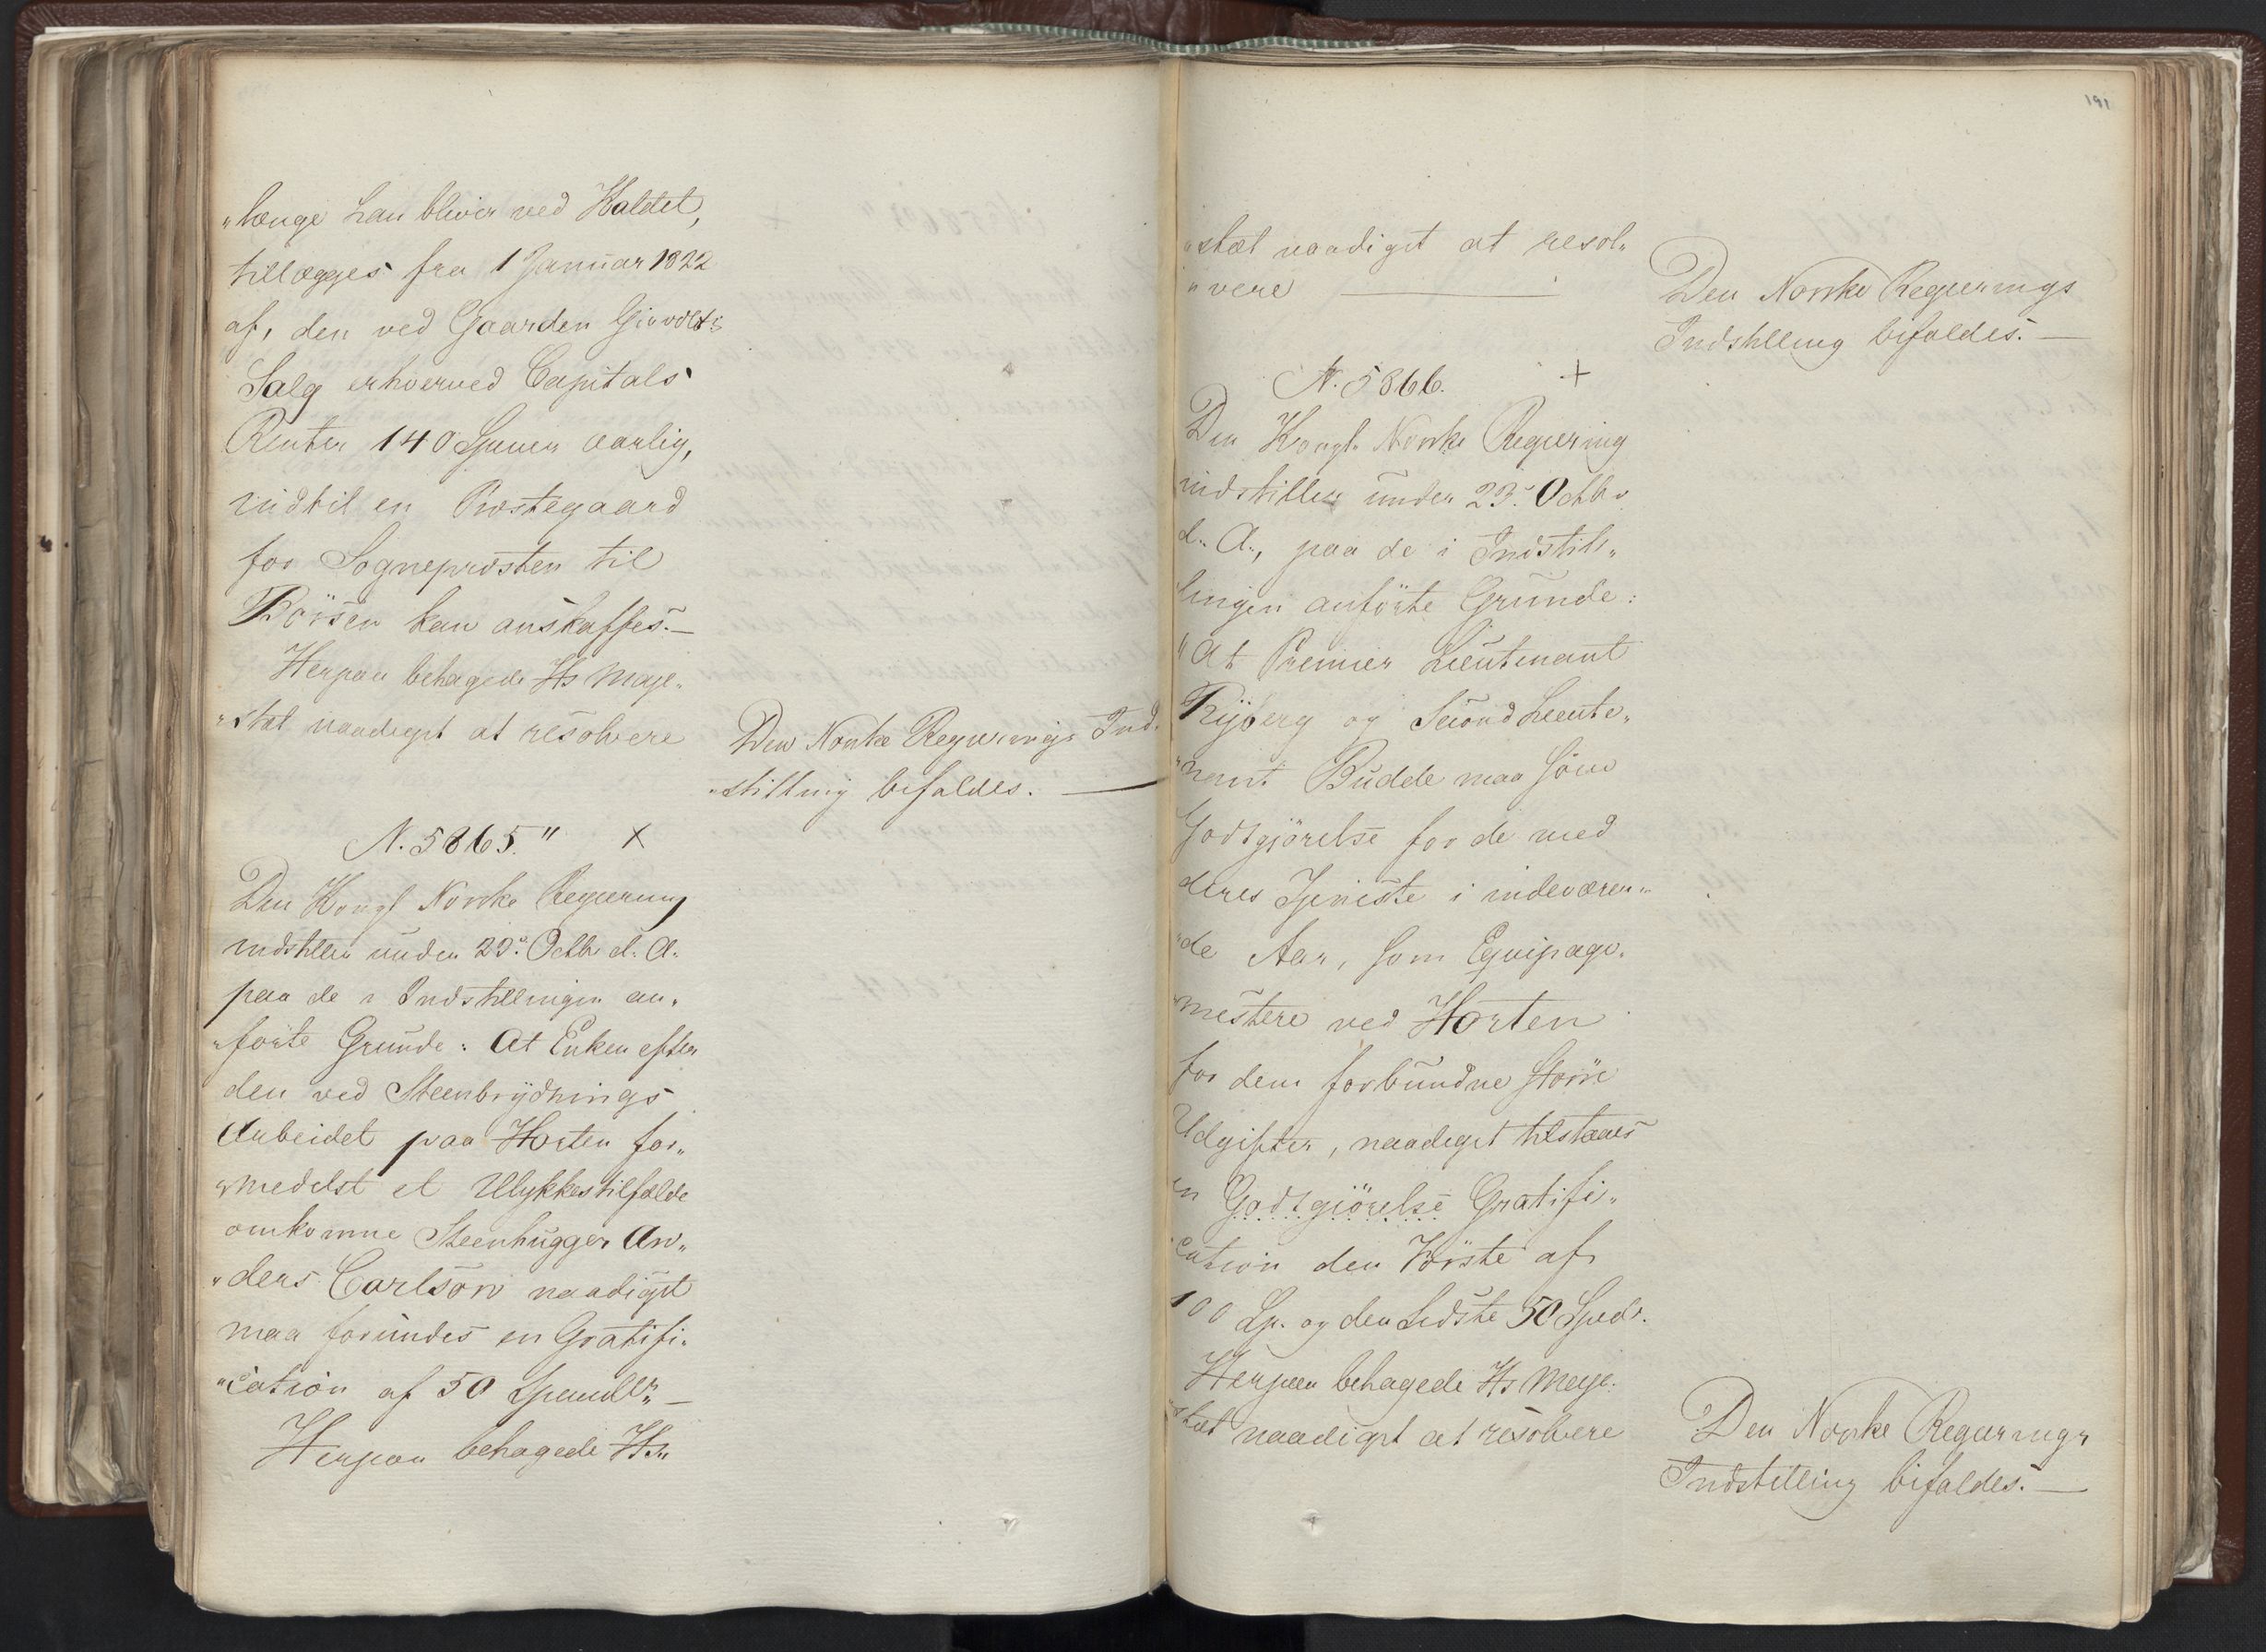 "længe han bliver ved Kaldet,
tillægges fra 1 Januar 1822
af, den ved Gaarden
Salg erhverved Capitals
Renter 140 Specier aarlig,
indtil en Præstegaard
for Sognepræsten til
Börsen kan anskaffes.—
Herpaa behagede Hs Maje„
"stæt naadigst at resolvere
Den Norske Regierings Ind„
„stilling bifaldes. —
N. 5865." X
Den Kongl Norske Regiering
indstiller under 23d Octbr d. A.
paa de i Indstillingen an„
„förte Grunde: At Enken efter
den ved Steenbrydnings
Arbeidet paa Horten for„
„medelst et Ulykkestilfælde
omkomne Steenhugger An„
„ders Carlson naadigst
maa forundes en Gratifi„
"cation af 50 Speciedlr. —
Herpaa behagede Hs.
191
„stæt naadigst at resol„
„vere —
Den Norske Regierings
Indstilling bifaldes. —
N. 5866. +
Den Kongl. Norske Regiering
indstiller under 23d Octbr
d. A., paa de i Indstil„
lingen anförte Grunde:
"At Premier Lieutenant
Ryberg og Second Lieute„
"nant Budde maa som
Godtgjörelse for de med
deres Tjeneste i indeværen„
"de Aar, som Equipage„
mestere ved Horten
for dem forbundne större
Udgifter, naadigst tilstaaes
en Godtgiörelse Gratifi„
cation den förste af
100 Sp. og den sidste 50 Spedr.
Herpaa behagede Hs Maje„
"stæt naadigst at resolvere
Den Norske Regierings
Indstilling bifaldes. —